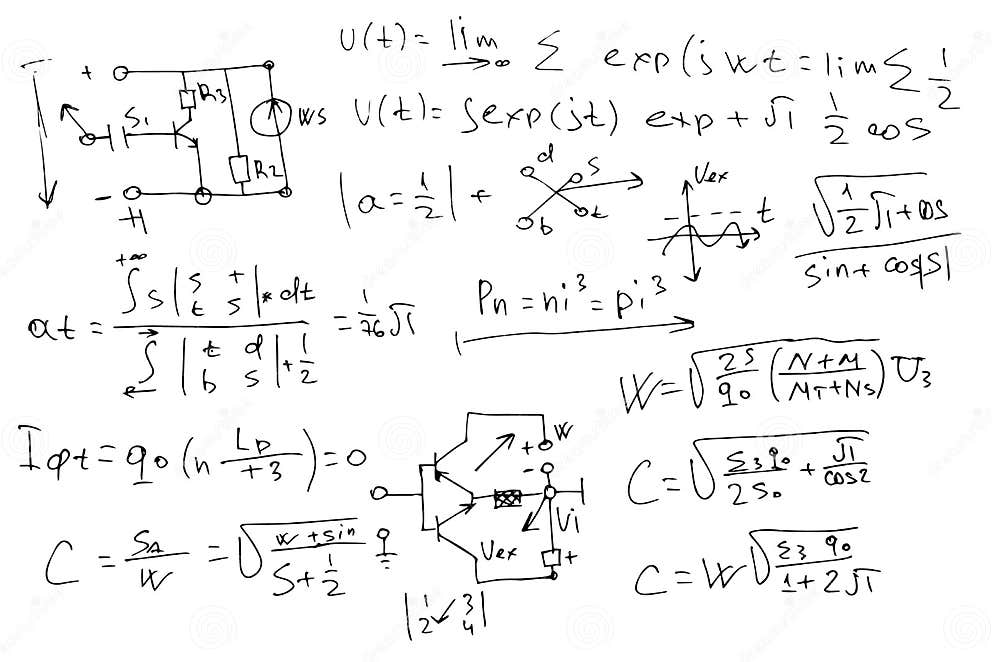 U(t) = lim →∞ Σ exp(j w t = lim Σ 1/2
U(t) = ∫exp(jt) exp + √1 1/2 cos
+ R3 S1 WS R2 -
|a = 1/2| + d S b t
Vex t
√(1/2 √1 + cos) / sin + cos|S|
at = ∫ +∞ S |S + t S| * dt / ∫ |t d b S| + 1/2 = 1/76 √1
Pn = ni³ = pi³
W = √(2S/q0 (N+M / MT+NS)) U3
Iφt = q0 (n LD/+3) = 0
W + - Vi + Vex
C = √(Σ3 q0 / 2S0 + √1 / cos2)
C = SA/W = √(W + sin / S + 1/2)
C = W √(Σ3 q0 / 1 + 2√1)
|1 3 2 4|